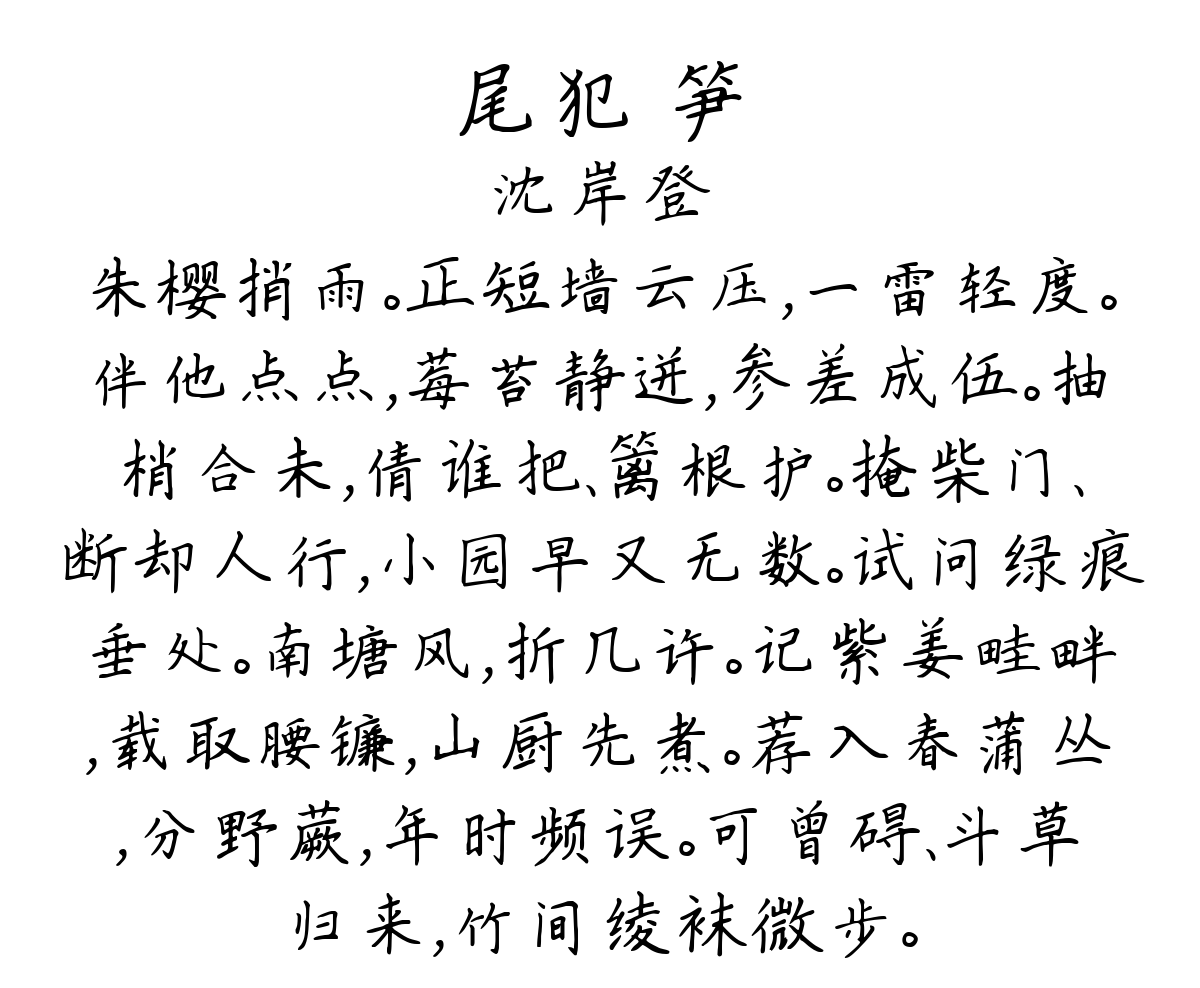 尾犯 笋
沈岸登
朱樱捎雨。正短墙云压,一雷轻度。
伴他点点,莓苔静迸,参差成伍。抽
梢合未,倩谁把、篱根护。掩柴门、
断却人行,小园早又无数。试问绿痕
垂处。南塘风,折几许。记紫姜畦畔
,载取腰镰,山厨先煮。荐入春蒲丛
,分野蕨,年时频误。可曾碍、斗草
归来,竹间绫袜微步。